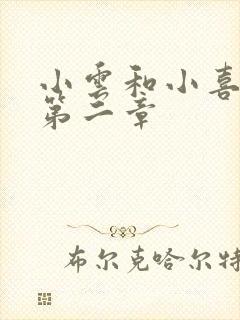 小雲和小喜
第二章
布尔克哈尔特